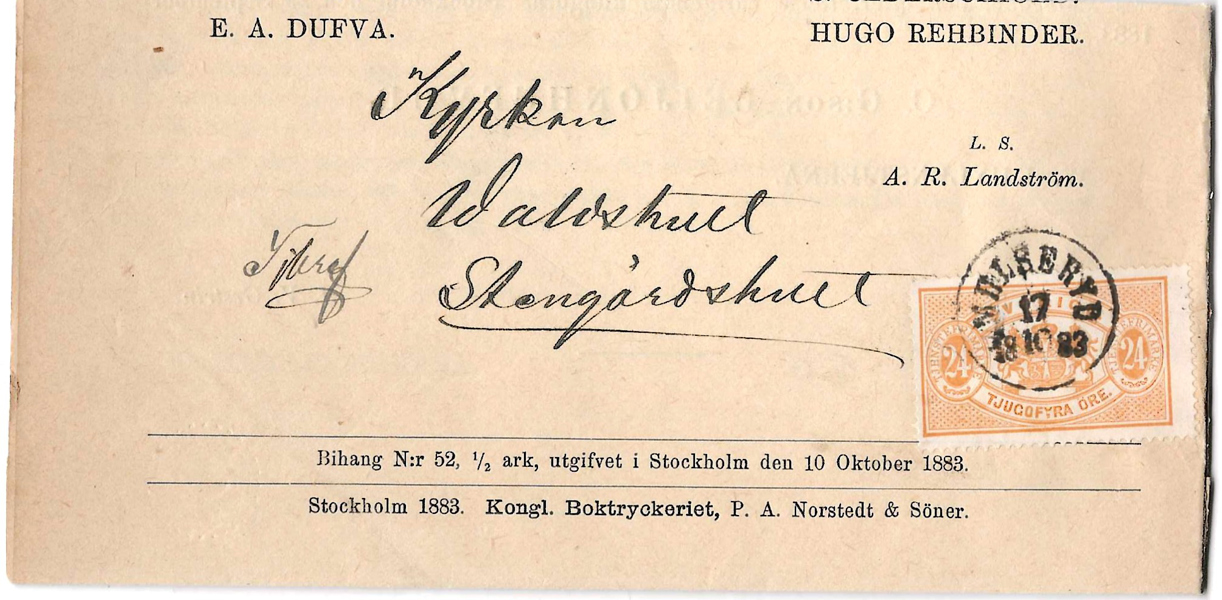 E. A. DUFVA.
HUGO REHBINDER.
Kyrkan
L. S.
A. R. Landström.
Waldshult
Tjbref
Stengårdshult
HELSERYD
17
18 10 83
SVERIGE
24 24
TJUGOFYRA ÖRE.
Bihang N:r 52, ½ ark, utgifvet i Stockholm den 10 Oktober 1883.
Stockholm 1883. Kongl. Boktryckeriet, P. A. Norstedt & Söner.